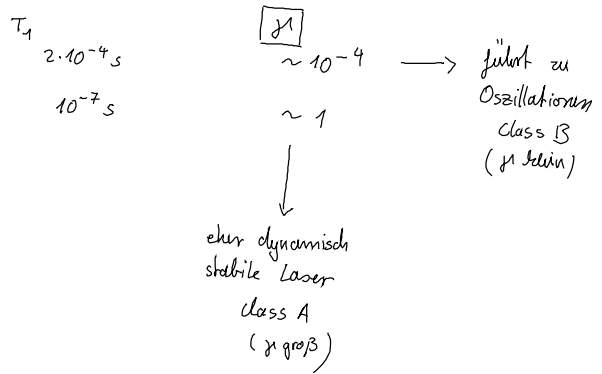 T₁ γ
2·10⁻⁴ s ~ 10⁻⁴ → führt zu
Oszillationen
class B
(γ klein)
10⁻⁷ s ~ 1
eher dynamisch
stabile Laser
class A
(γ groß)